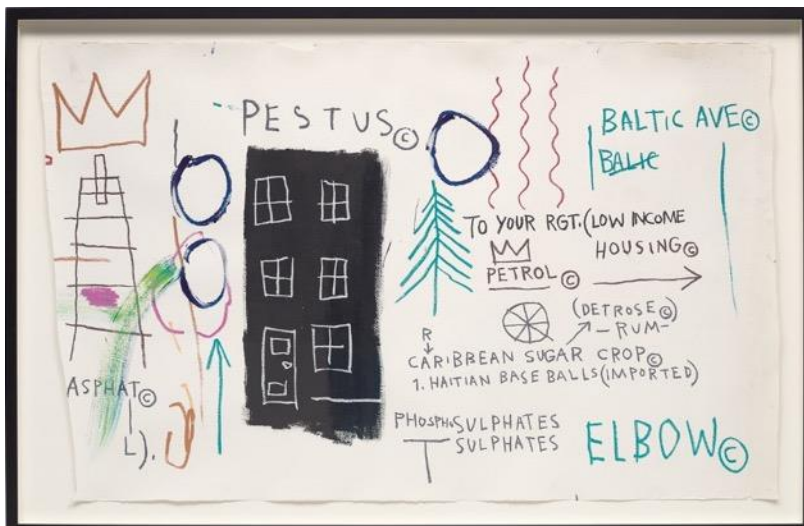 PESTUS©
BALTIC AVE©
BALIC
TO YOUR RGT. (LOW INCOME
HOUSING©
PETROL©
(DETROSE©)
-RUM-
R
CARIBBEAN SUGAR CROP©
1. HAITIAN BASE BALLS (IMPORTED)
ASPHAT©
L).
PHOSPHSULPHATES
SULPHATES
ELBOW©